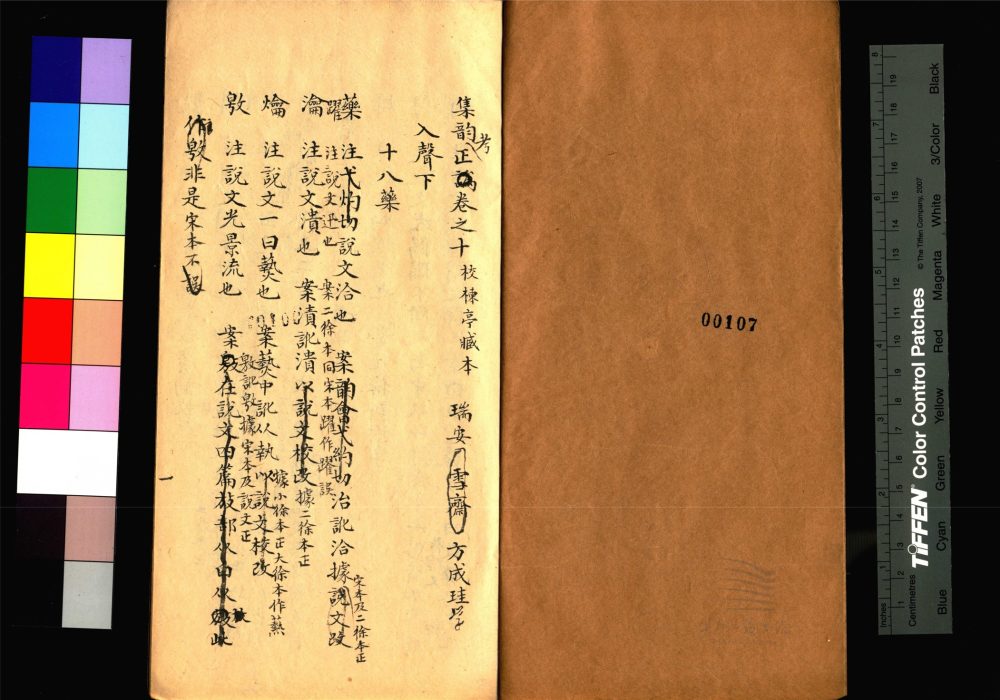 集韵考正卷之十 校楝亭臧本 瑞安 雪齋 方成珪學
入聲下
十八藥
藥 注弋灼切說文治也 案韵會弋約切治訛治據說文改 宋本及二徐本正
躍 注說文迅也 案二徐本同宋本躍作躍誤
瀹 注說文漬也 案漬訛潰以說文校改據二徐本正
爚 注說文一曰爇也 案爇中訛从執以說文校改 據小徐本正大徐本作爇
敫 注說文光景流也 案敫在說文四篇放部从白从放此 敫訛敫據宋本及說文正
作敫非是宋本不誤
一
00107
8
19 18 17 16 15 14 13 12 11 10 9 8 7 6 5 4 3 2 1
7 6 5 4 3 2 1
Inches
Centimetres
TIFFEN® Color Control Patches
© The Tiffen Company, 2007
Blue Cyan Green Yellow Red Magenta White 3/Color Black